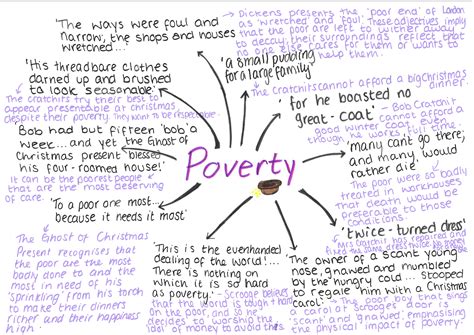 'The ways were foul and
narrow; the shops and houses
wretched...'
Dickens presents the 'poor end' of London
as 'wretched' and 'foul'. These adjectives imply
that the poor are left to wither away
to decay; their surroundings reflect that
no one else cares for them or wants to
help them.
'His threadbare clothes
darned up and brushed
to look seasonable'
The Cratchits try their best to
appear presentable at Christmas
despite their poverty. They want to be respectable.
'a small pudding
for a large family'
The Cratchits cannot afford a big Christmas
dinner.
'for he boasted no
great-coat'
- Bob Cratchit
cannot afford a
good winter coat even
though he works full time.
Bob had but fifteen 'bob' a
week....and yet the Ghost of
Christmas present blessed
his four-roomed house!'
It can be the poorest people
that are the most deserving
of care.
Poverty
'many can't go there;
and many would
rather die'
The poor were so badly
treated in workhouses
that death would be
preferable to those
conditions.
'To a poor one most...
because it needs it most'
The Ghost of Christmas
Present recognises that
the poor are the most
badly done to and the
most in need of his
'sprinkling' from his torch
to make their dinners
richer and their happiness
high
'This is the evenhanded
dealing of the world!...
There is nothing on
which it is so hard
as poverty.'
- Scrooge believes
that the world is tough + hard
on the poor, and so he
decides to worship the
look of money to avoid this
'twice-turned dress'
Mrs Cratchit has repaired and
'The owner of a scant young
nose, gnawed and mumbled
by the hungry cold... stooped
to regale him with a Christmas
carol'
- The poor boy that sings
a carol at Scrooge's door is
'scant' and 'gnawed', emphasising
the physical impact of poverty
on him.